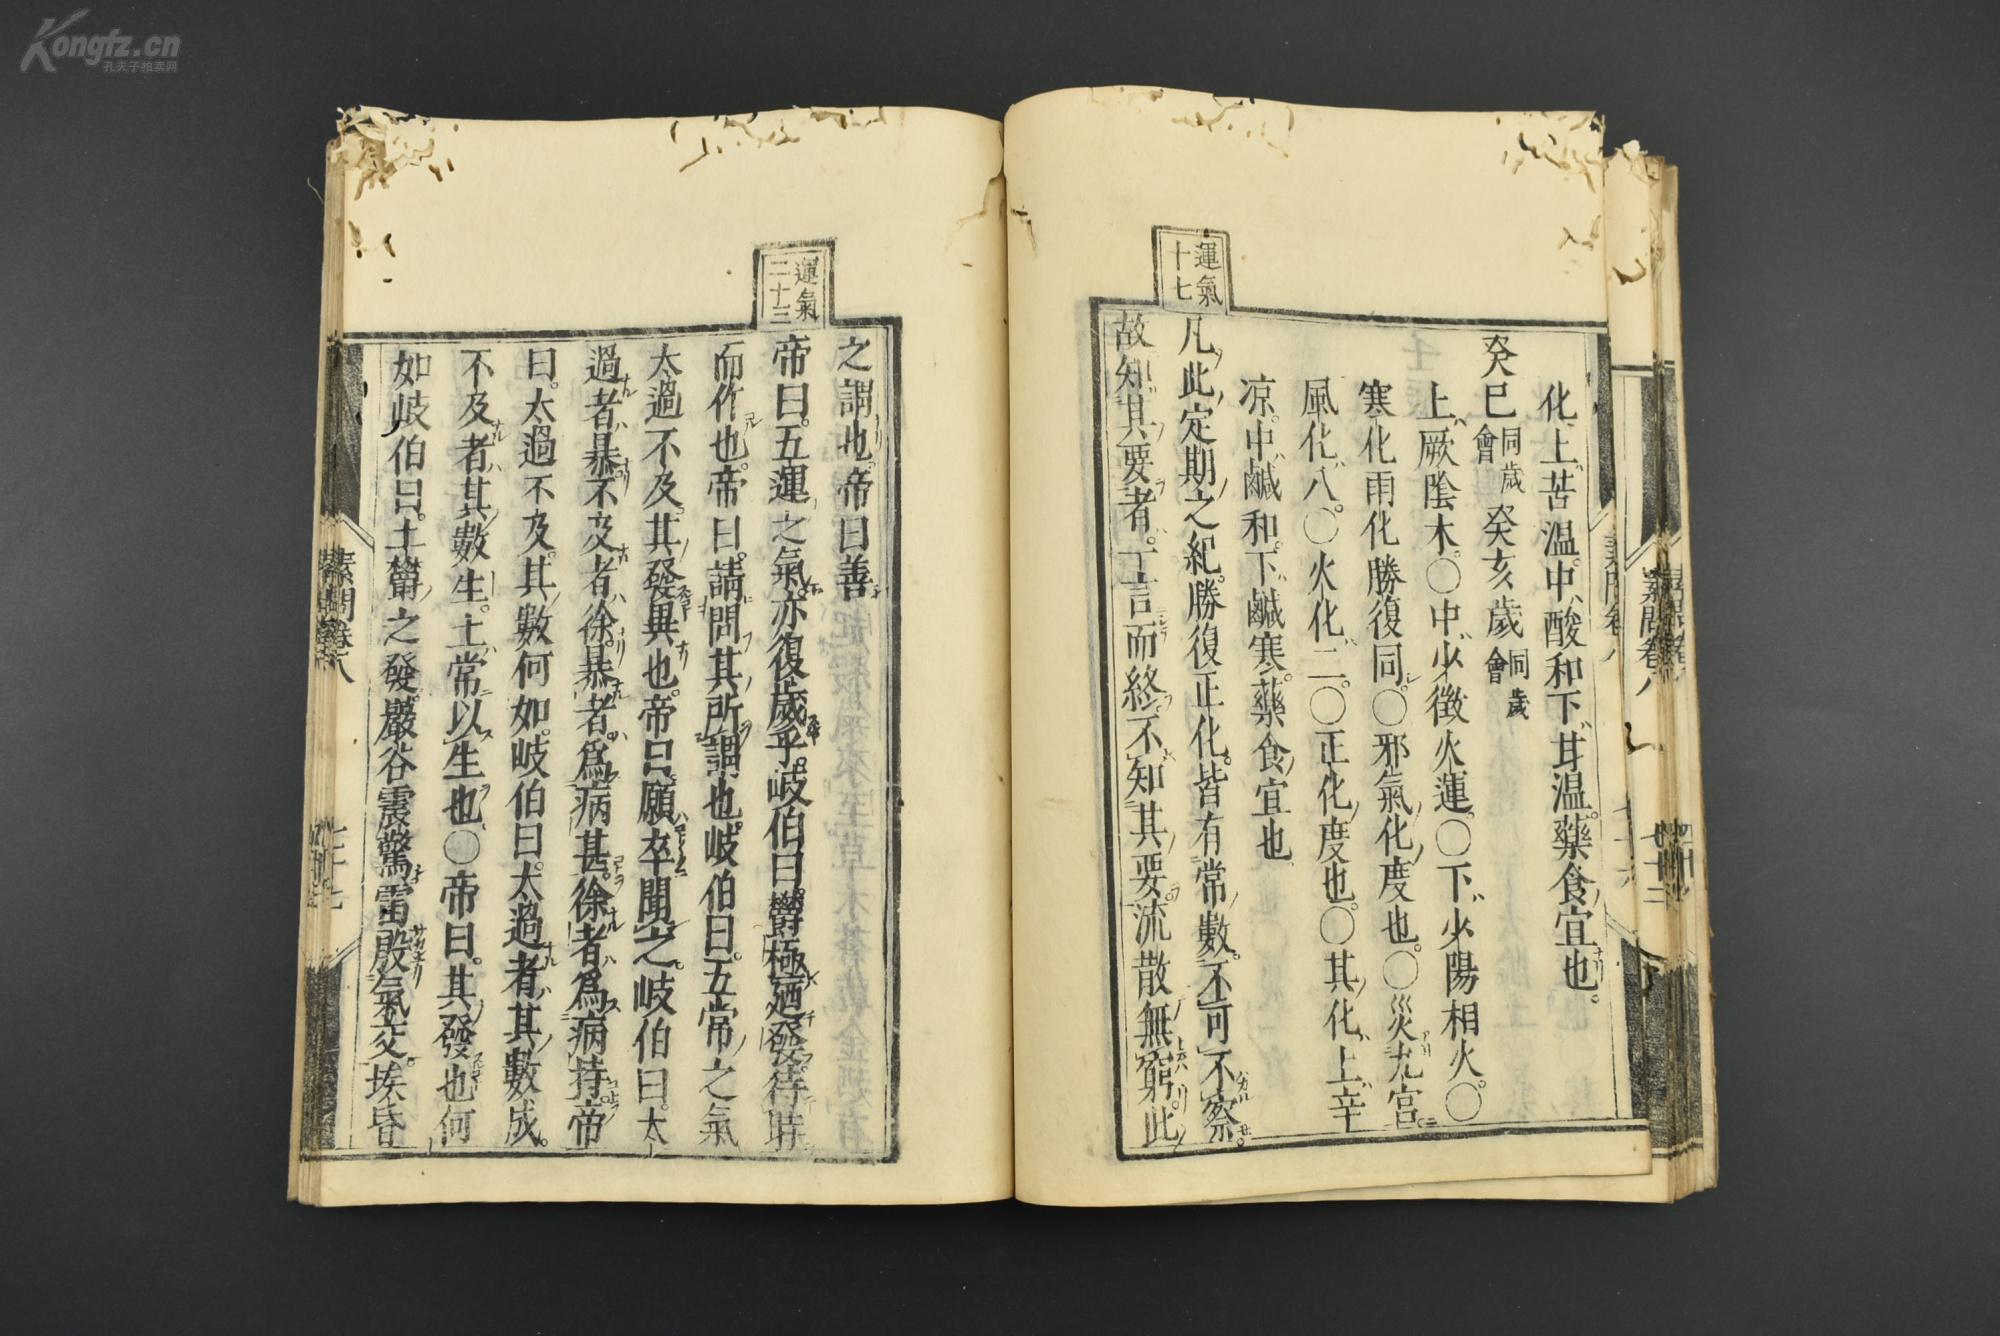 Kongfz.cn
孔夫子拍卖网
運氣
十七
化上苦溫中酸和下甘温藥食宜也
癸巳同歲會癸亥歲同歲會
上厥陰木○中少徵火運○下少陽相火○
寒化雨化勝復同○邪氣化度也○災九宮
風化八○火化二○正化度也○其化上辛
凉中鹹和下鹹寒藥食宜也
凡此定期之紀勝復正化皆有常數不可不察
故知其要者一言而終不知其要流散無窮此
運氣
二十三
之謂也帝曰善
帝曰五運之氣亦復歲乎岐伯曰鬱極廼發待時
而作也帝曰請問其所謂也岐伯曰五常之氣
太過不及其發異也帝曰願卒聞之岐伯曰太
過者暴不及者徐暴者爲病甚徐者爲病持帝
曰太過不及其數何如岐伯曰太過者其數成
不及者其數生土常以生也○帝曰其發也何
如岐伯曰土鬱之發巖谷震驚雷殷氣交埃昏
素問卷八
素問卷八